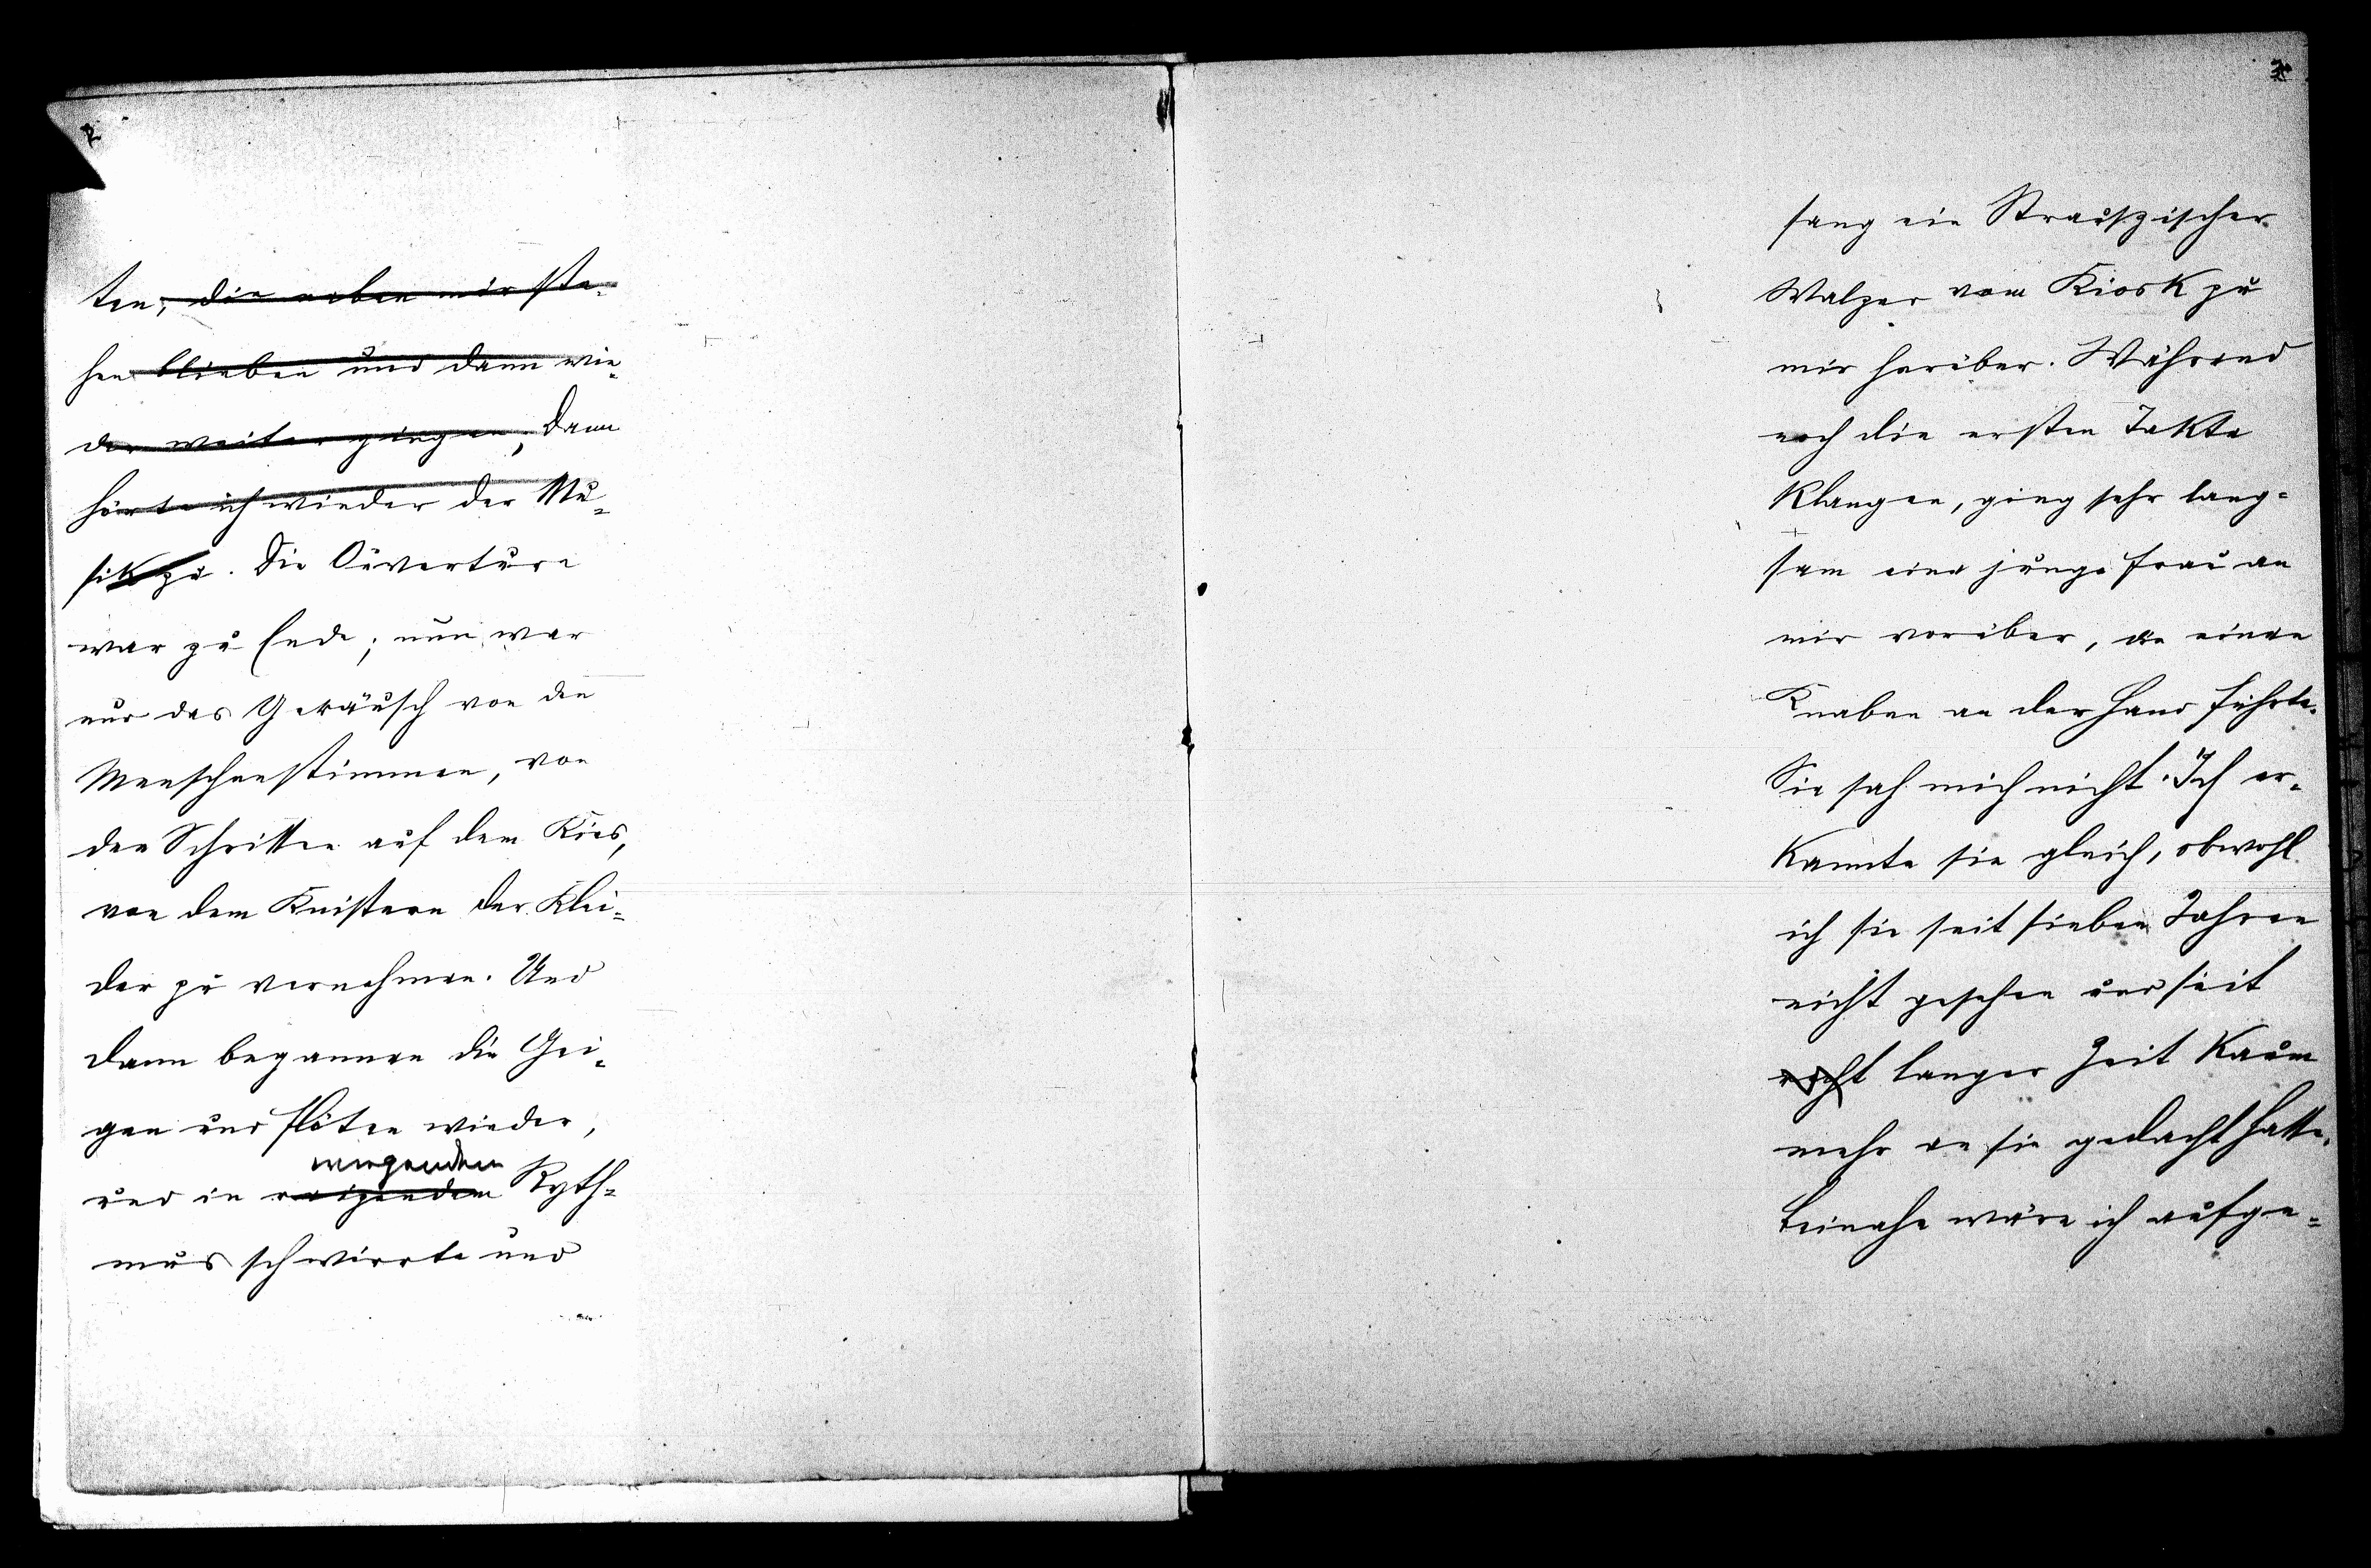 2
ten, die neben mir ste-
hen blieben und dann wie-
der weiter gingen; dann
hörte ich wieder der Mu-
sik zu. Die Ouverture
war zu Ende; nun war
nur das Geräusch von den
Menschenstimmen, von
den Schritten auf dem Kies,
von dem Knistern der Klei-
der zu vernehmen. Und
dann begannen die Gei-
gen und Flöten wieder,
wiegendem
und in reizendem Ryth-
mus schwirrte und
3
sang ein Strauszischer
Walzer vom Kiosk zu
mir herüber. Während
noch die ersten Takte
klangen, ging sehr lang-
sam eine junge Frau an
mir vorüber, die einen
Knaben an der Hand führte.
Sie sah mich nicht. Ich er-
kannte sie gleich, obwohl
ich sie seit sieben Jahren
nicht gesehen und seit
recht langer Zeit kaum
mehr an sie gedacht hatte.
Beinahe wäre ich aufge-